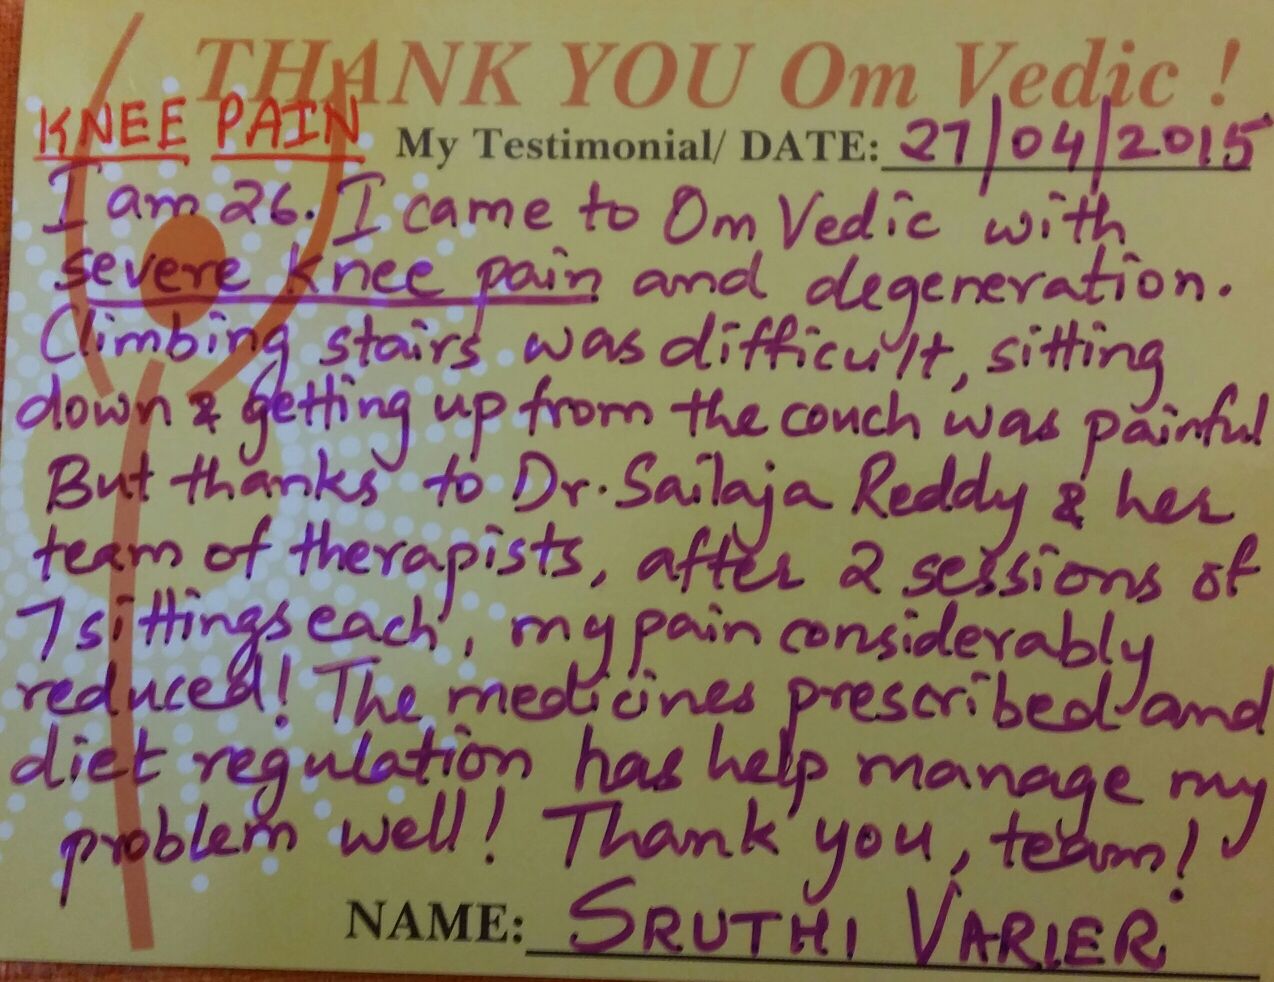 THANK YOU Om Vedic !
KNEE PAIN
My Testimonial/ DATE: 27/04/2015
I am 26. I came to Om Vedic with
severe knee pain and degeneration.
Climbing stairs was difficult, sitting
down & getting up from the couch was painful
But thanks to Dr. Sailaja Reddy & her
team of therapists, after 2 sessions of
7 sittings each, my pain considerably
reduced! The medicines prescribed and
diet regulation has help manage my
problem well! Thank you, team!
NAME: SRUTHI VARIER